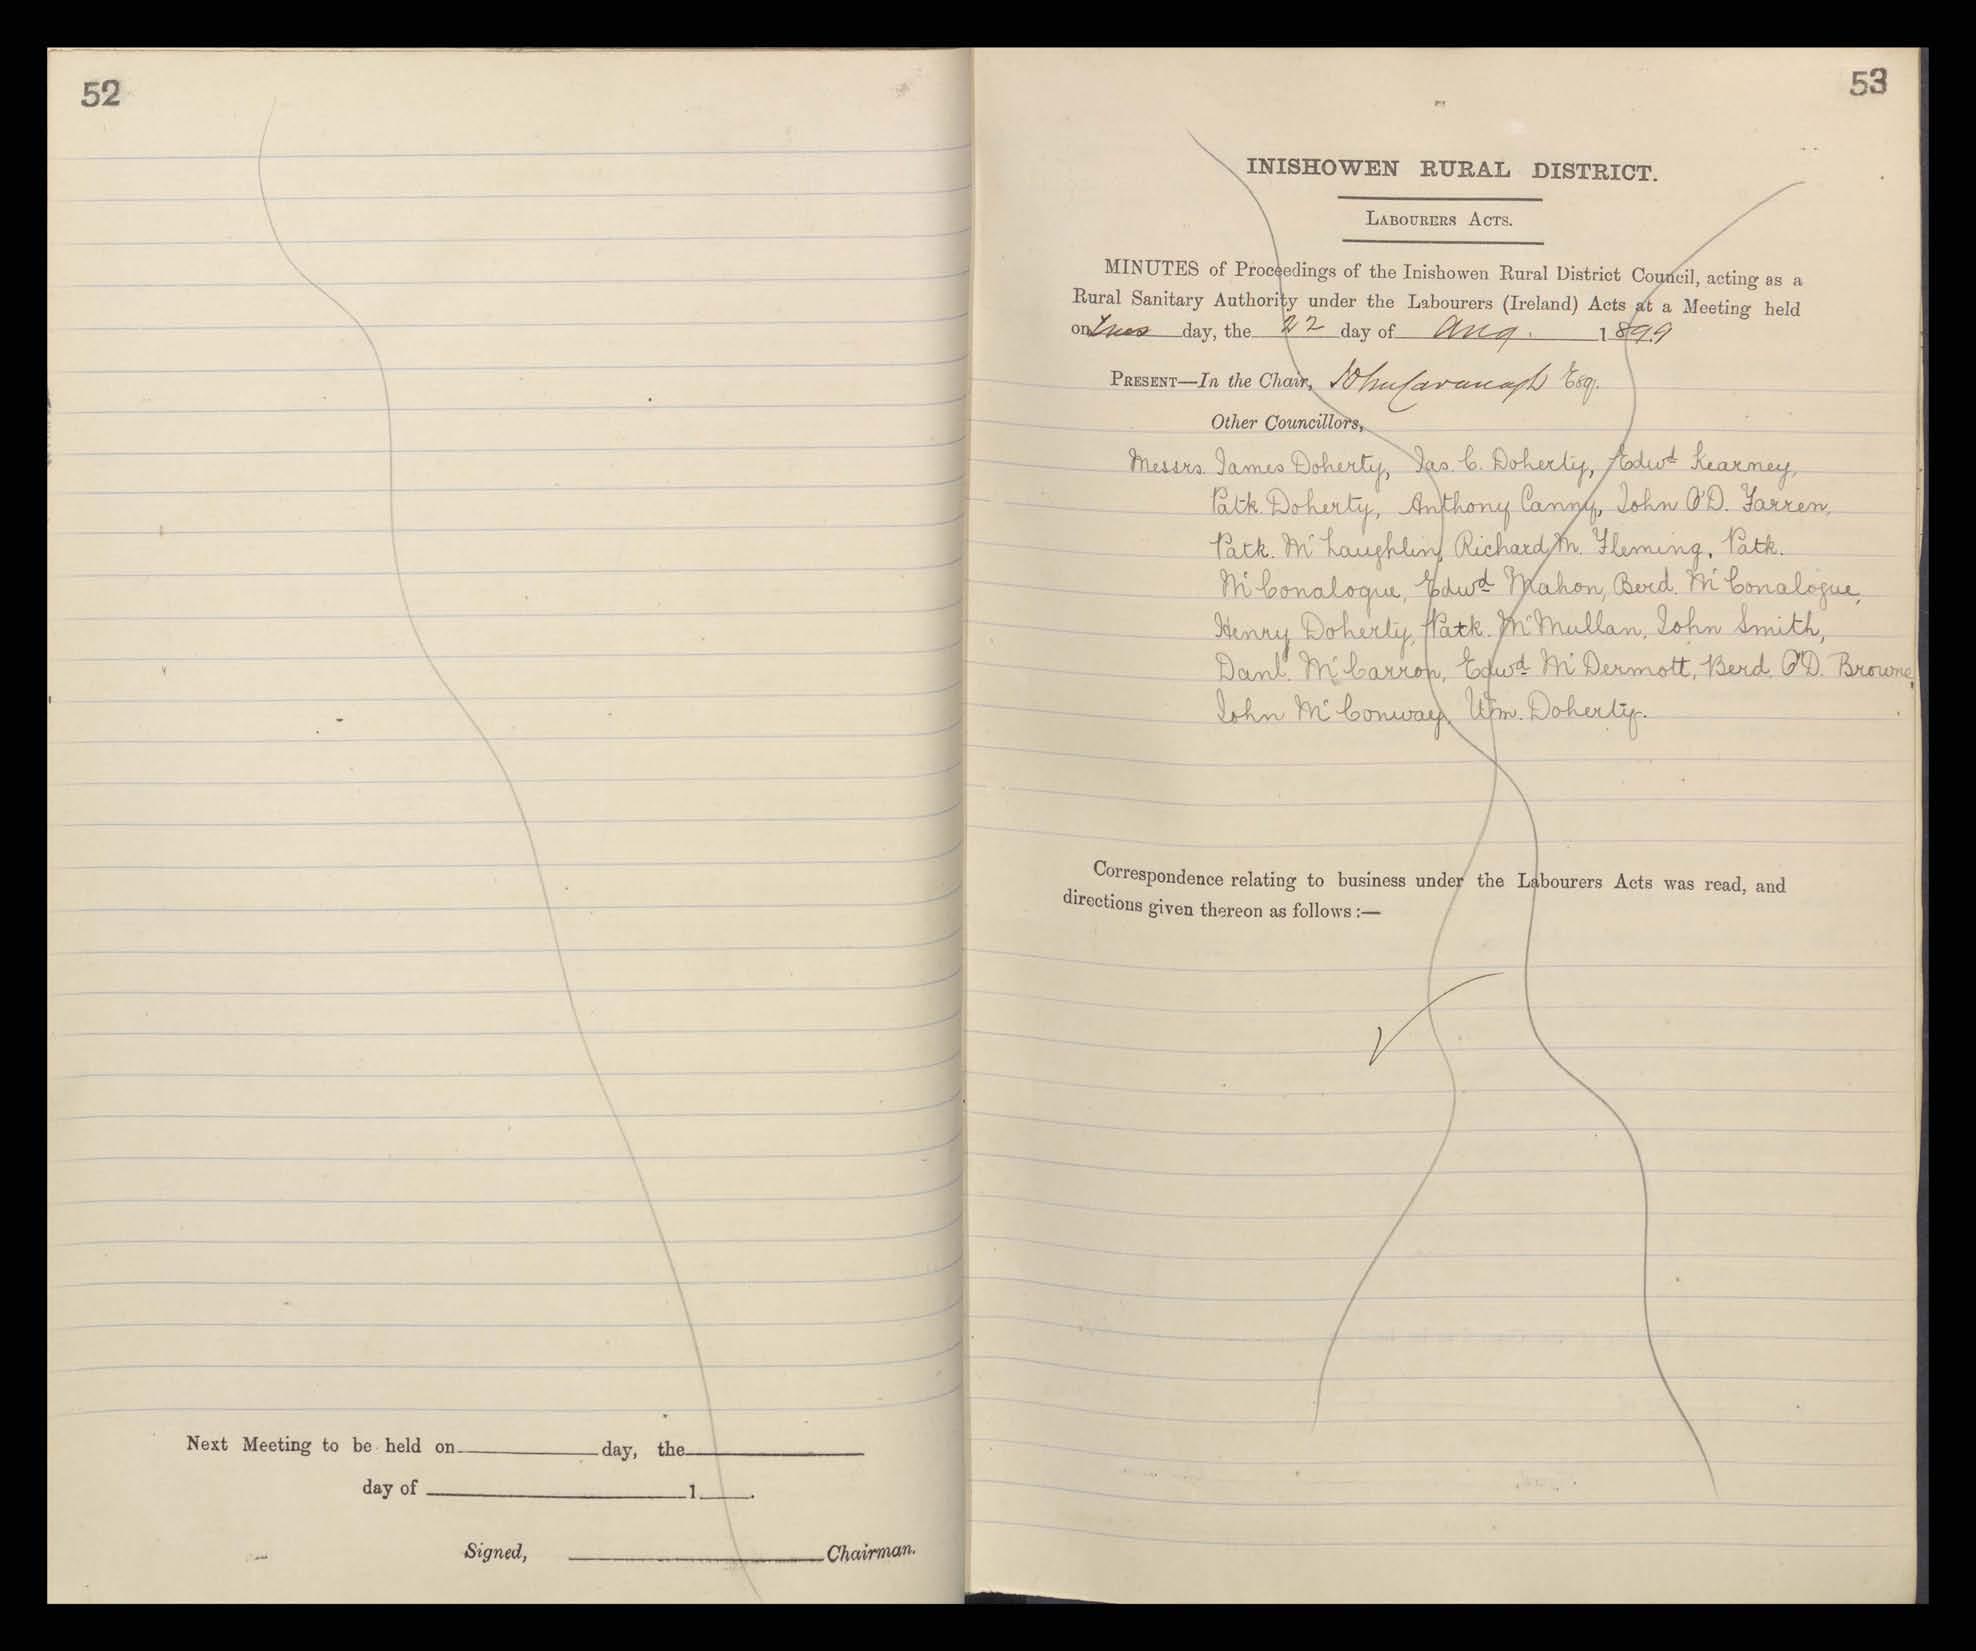 52
Next Meeting to be held on day, the
day of 1 .
Signed, Chairman.
53
INISHOWEN RURAL DISTRICT.
LABOURERS ACTS.
MINUTES of Proceedings of the Inishowen Rural District Council, acting as a
Rural Sanitary Authority under the Labourers (Ireland) Acts at a Meeting held
on Tues day, the 22 day of Aug. 1899
PRESENT—In the Chair, John Cavanagh Esq.
Other Councillors,
Messrs. James Doherty, Jas. C. Doherty, Edwd Kearney,
Patk. Doherty, Anthony Canny, John O'D. Farren,
Patk. McLaughlin, Richard M. Fleming, Patk.
McConalogue, Edwd Mahon, Berd. McConalogue,
Henry Doherty, Patk. McMullan, John Smith,
Danl. McCarron, Edwd McDermott, Berd. O'D. Browne,
John McConway, Wm. Doherty.
Correspondence relating to business under the Labourers Acts was read, and
directions given thereon as follows :—